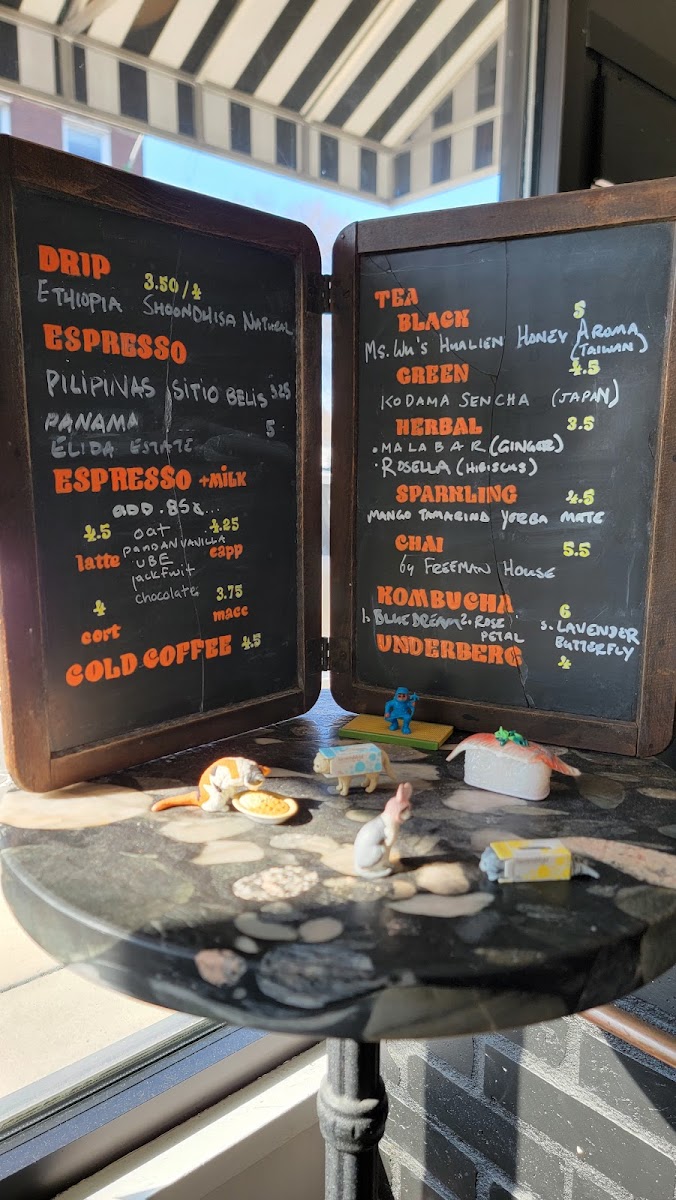 DRIP
3.50/4
ETHIOPIA SHOONDHISA NATURAL
ESPRESSO
PILIPINAS SITIO BELIS 5.25
PANAMA 5
ELIDA ESTATE
ESPRESSO +MILK
ADD .85¢...
4.5 oat 4.25
latte PANDAN VANILLA capp
UBE
jackfruit
chocolate 3.75
4 macc
cort
COLD COFFEE 4.5
TEA
BLACK 5
MS. WU'S HUALIEN HONEY AROMA
(TAIWAN)
GREEN 4.5
KODAMA SENCHA (JAPAN)
HERBAL 3.5
• MALABAR (GINGER)
• ROSELLA (HIBISCUS)
SPARKLING 4.5
MANGO TAMARIND YERBA MATE
CHAI 5.5
by FREEMAN HOUSE
KOMBUCHA 6
1. BLUE DREAM 2. ROSE PETAL 3. LAVENDER BUTTERFLY
UNDERBERG 4